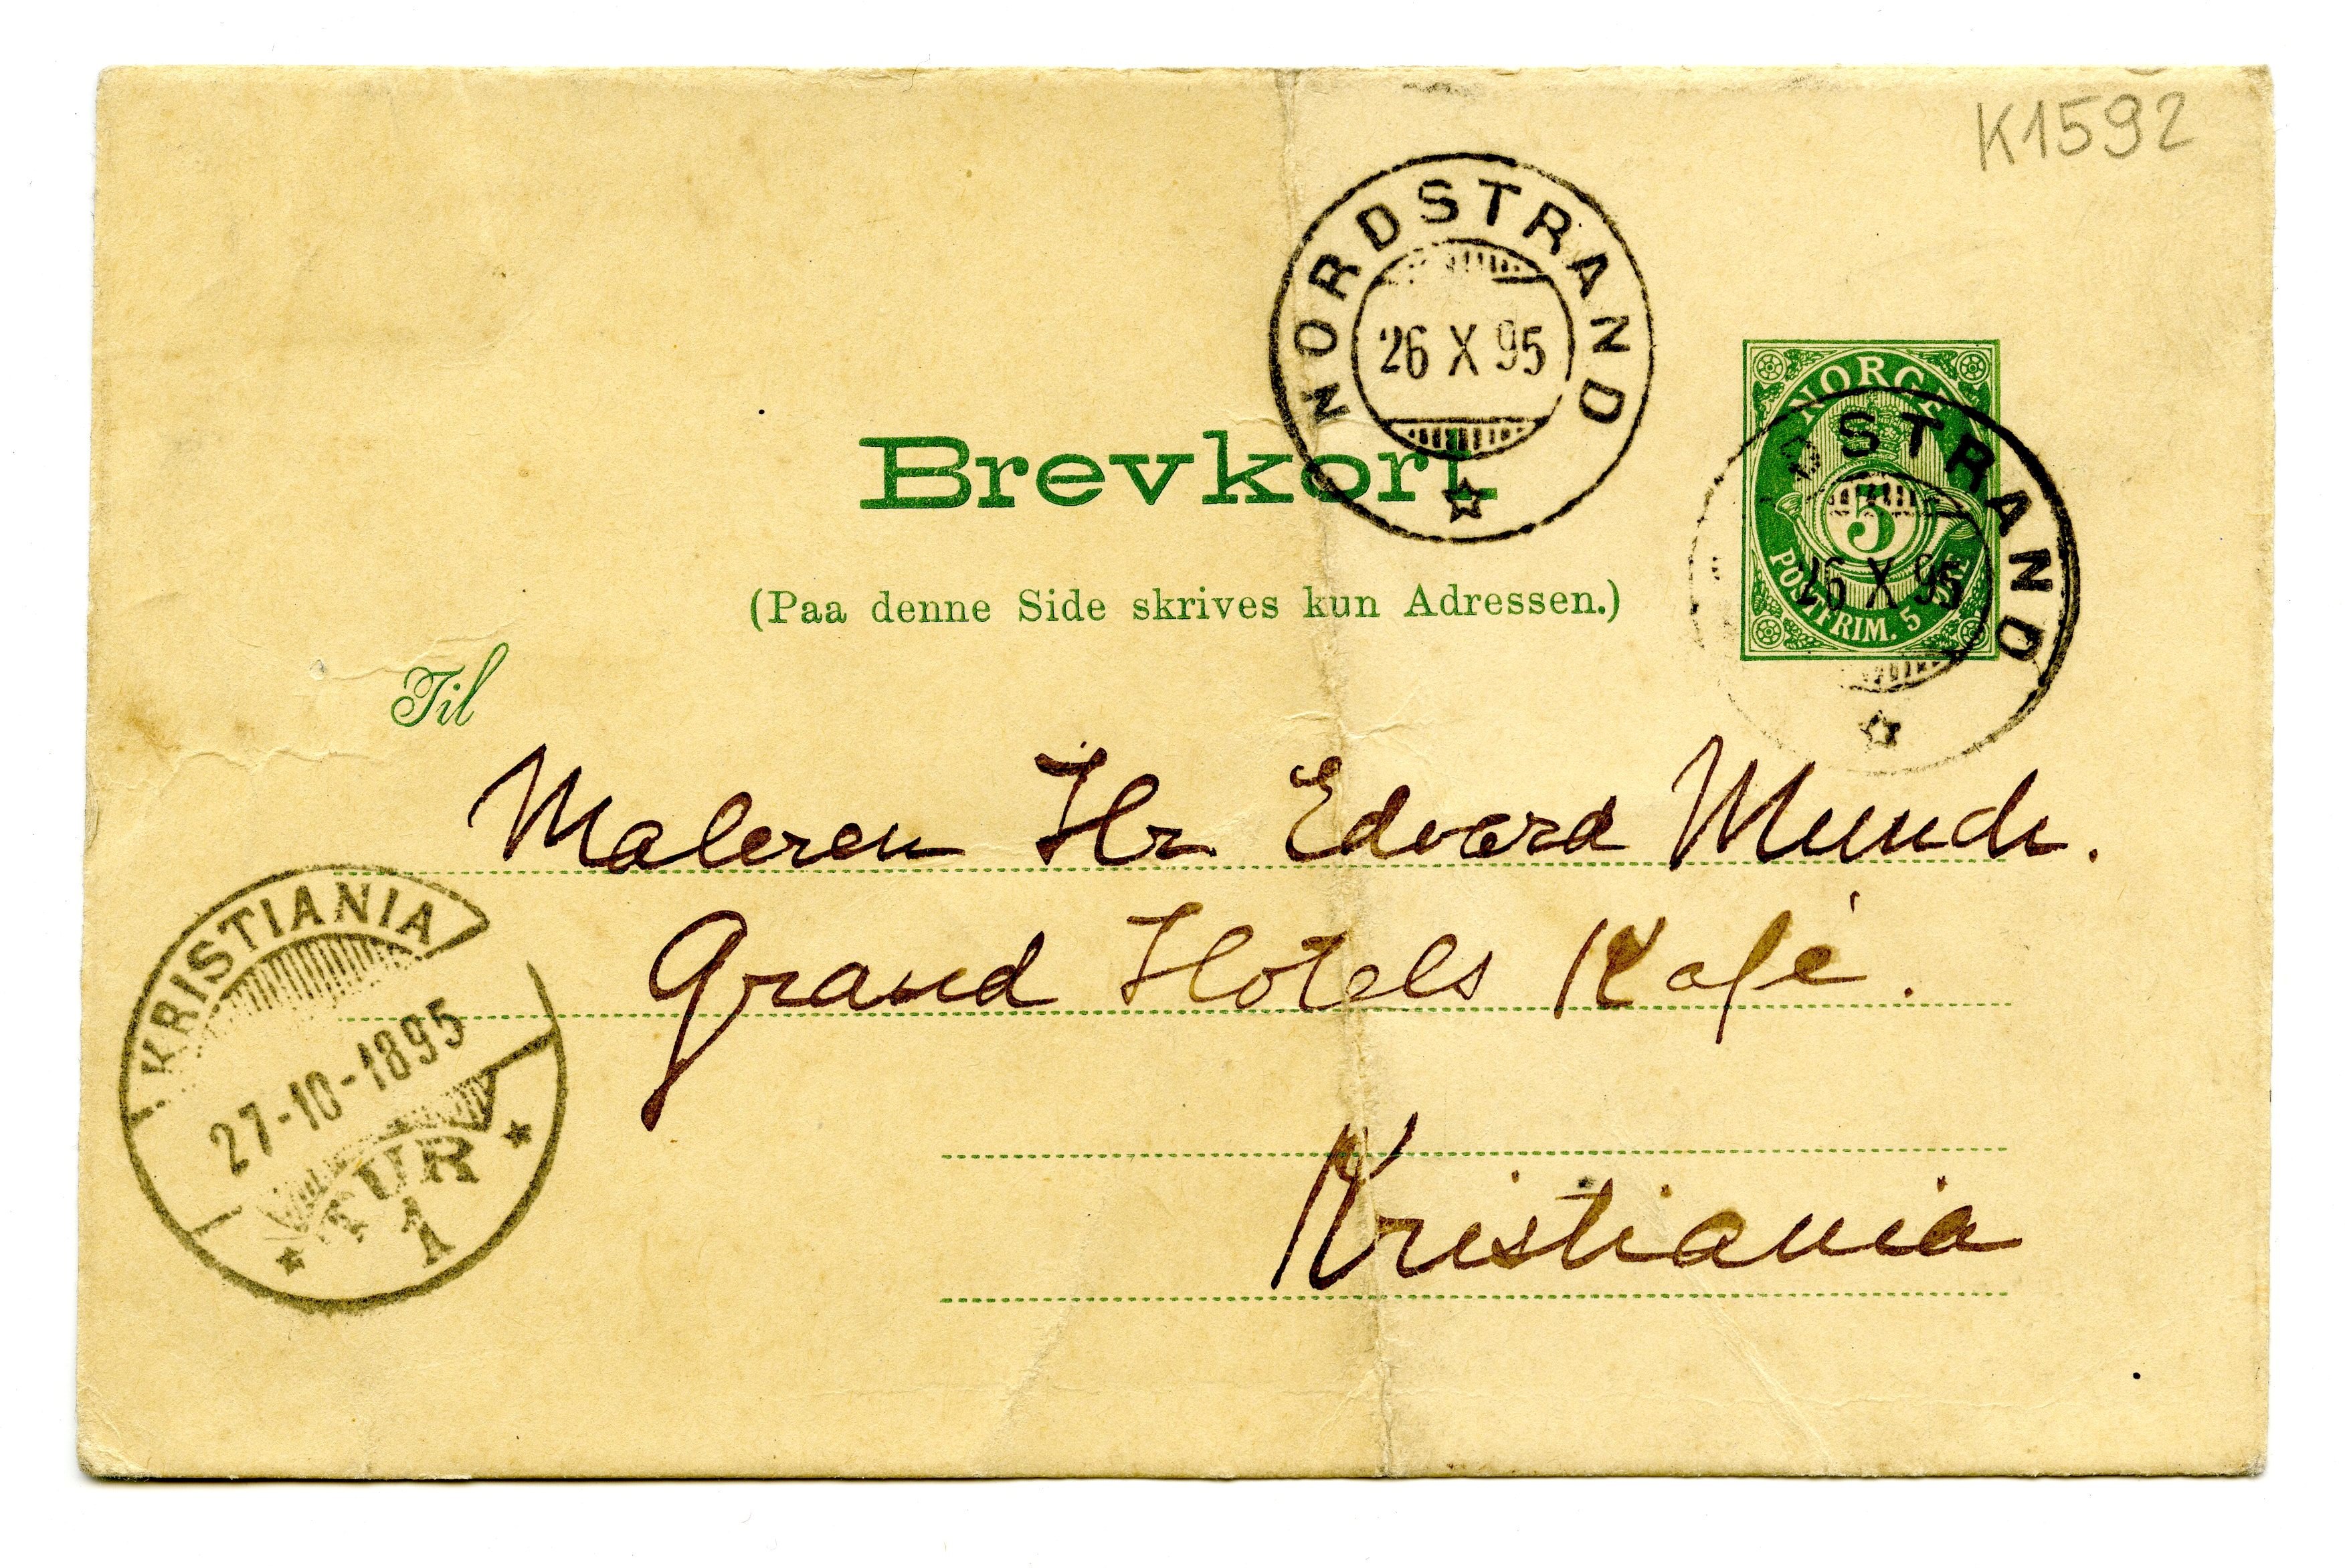 K1592
NORDSTRAND
26 X 95
NORGE
5
POSTFRIM. 5 ØRE
DSTRAND
26 X 95
Brevkort
(Paa denne Side skrives kun Adressen.)
Til
Maleren Hr Edvard Munch.
Grand Hotels Kafé.
Kristiania
KRISTIANIA
27-10-1895
TUR
A